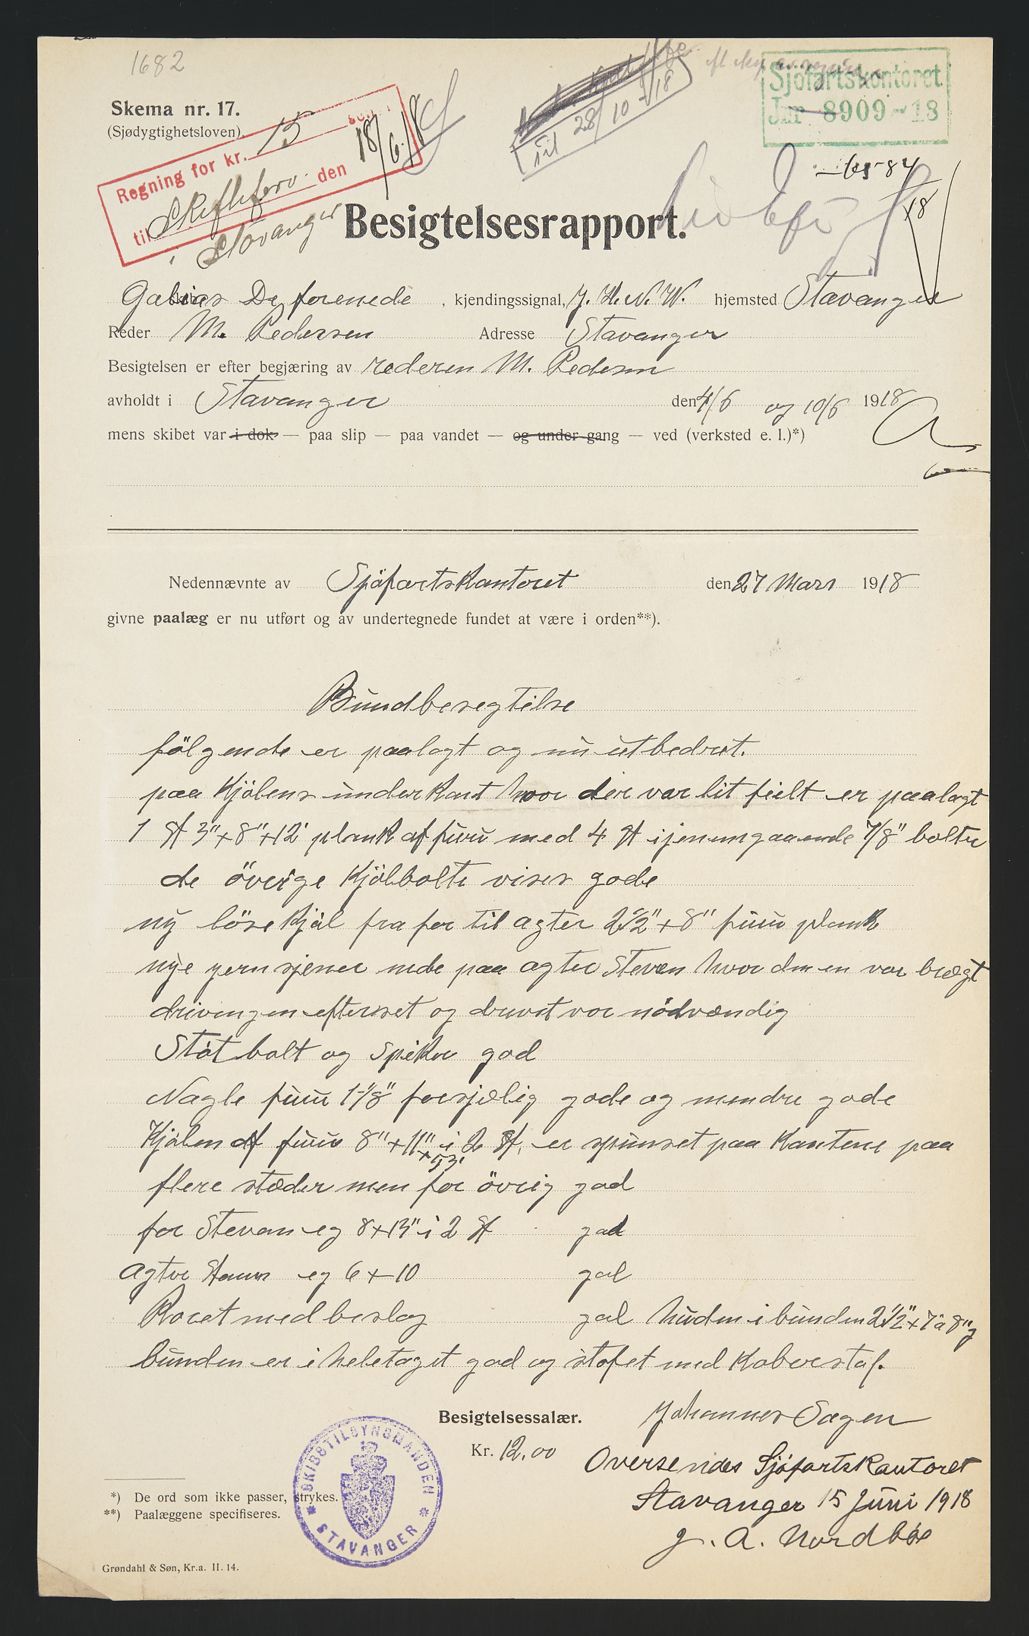 1682
Skema nr. 17.
(Sjødygtighetsloven).
Regning for kr. 15 send
til Skibsførv. den 18/6-18
i Stavanger
Til 28/10-18
Sjøfartskontoret
Jnr 8909-18
Besigtelsesrapport.
Galias De forenede, kjendingssignal, J. H. N. W. hjemsted Stavanger
Reder M. Pedersen Adresse Stavanger
Besigtelsen er efter begjæring av rederen M. Pedersen
avholdt i Stavanger den 4/6 og 10/6 1918
mens skibet var i dok — paa slip — paa vandet — og under gang — ved (verksted e. l.)*)
Nedennævnte av Sjøfartskontoret den 27 Mars 1918
givne paalæg er nu utført og av undertegnede fundet at være i orden**).
Bundbesegtilse
følgende er paalagt og nu utbedret.
paa Kjølens underkant hvor der var lit feilt er paalagt
1 st 3"+8"+12' plank af furu med 4 st igjenemgaaende 7/8" bolter
de øvrige Kjølbolte vises gode
ny løsekjøl fra for til agter 2½"+8" furu plank
nye jern sjener nede paa agter Steven hvor den en var brægt
drivingen efterset og drevet vor nødvændig
Støtbolt og Spiker god
Nagle furu 1-1/8" forsjælig gode og mendre gode
Kjølen af furu 8"+11"+53' i 2 st. er spunset paa Kantene paa
flere stæder men for øvrig god
for Steven eg 8+13" i 2 st god
agter Stævn eg 6+10 god
Roret med beslag god huden i bunden 2½"+7 a 8" g
bunden er i heletaget god og støfet med Koberstof.
Besigtelsessalær. Johannes Sagen
Kr. 12.00
Oversendes Sjøfartskontoret
Stavanger 15 Juni 1918
J. A. Nordbøe
SKIBSTILSYNSMANDEN
STAVANGER
*) De ord som ikke passer, strykes.
**) Paalæggene specifiseres.
Grøndahl & Søn, Kr.a. II. 14.